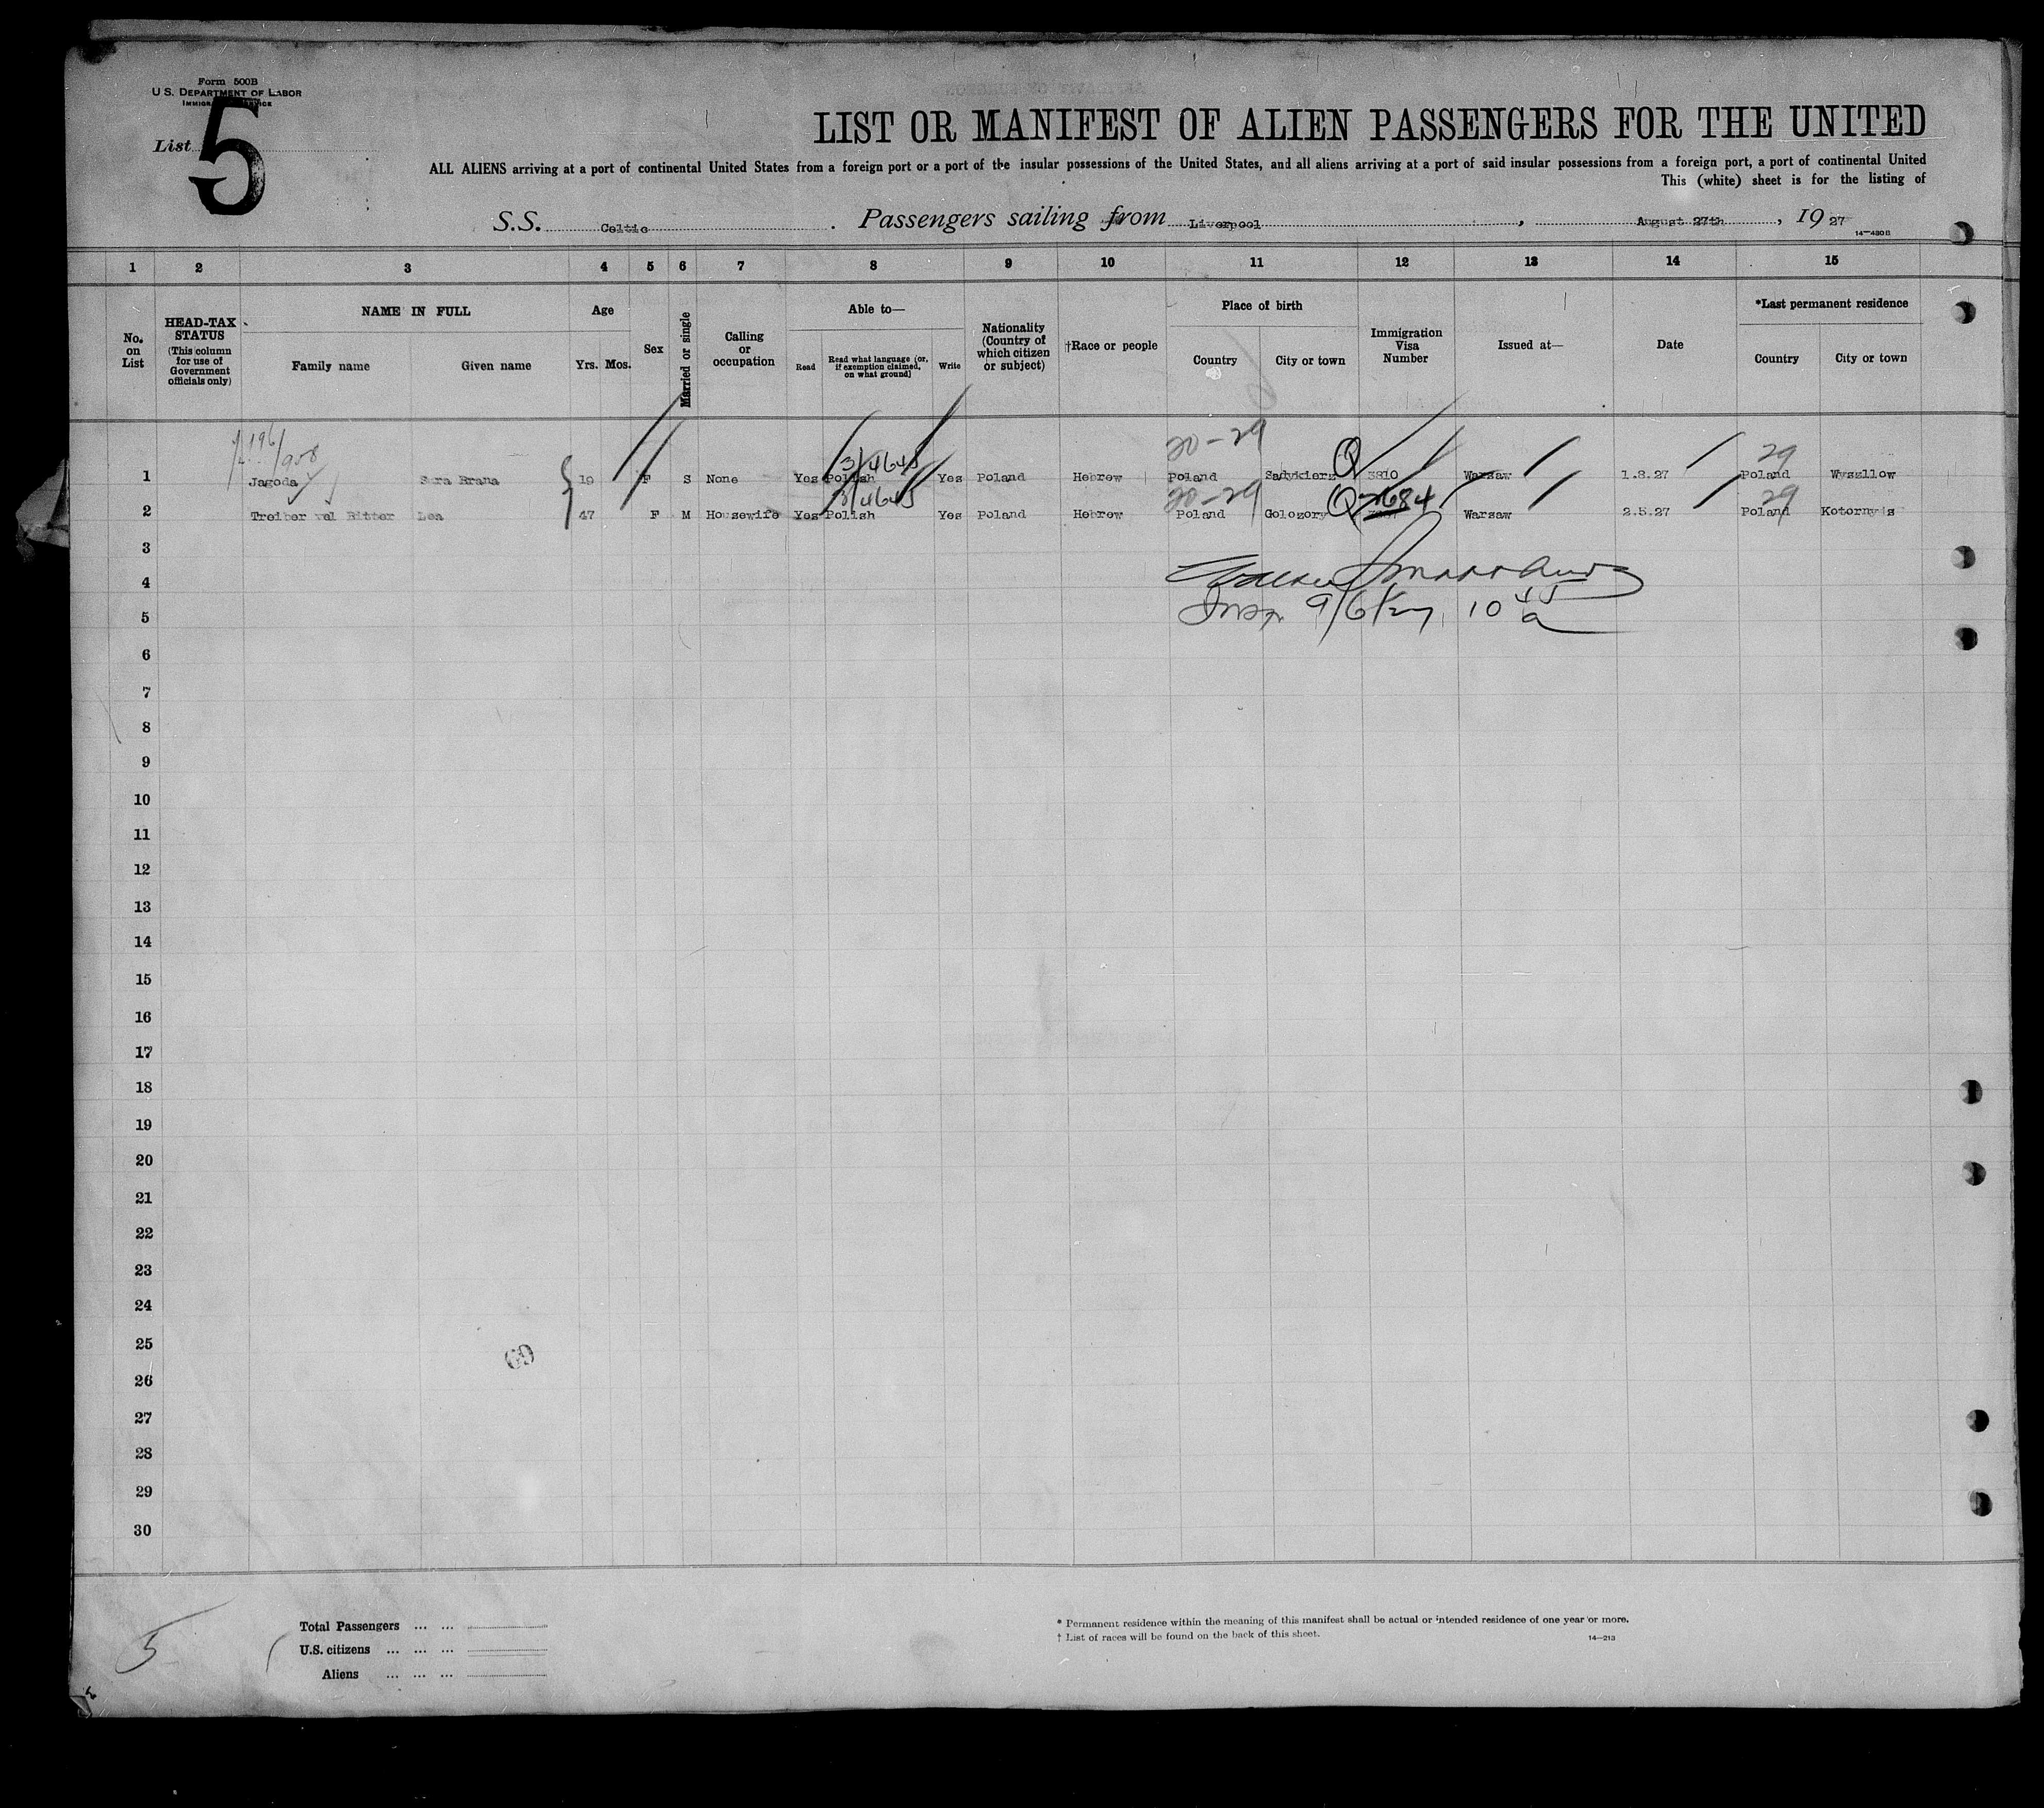 Form 500B
U. S. DEPARTMENT OF LABOR
List 5
LIST OR MANIFEST OF ALIEN PASSENGERS FOR THE UNITED
ALL ALIENS arriving at a port of continental United States from a foreign port or a port of the insular possessions of the United States, and all aliens arriving at a port of said insular possessions from a foreign port, a port of continental United
This (white) sheet is for the listing of
S.S. Celtic. Passengers sailing from Liverpool, August 27th, 1927
14-430B
1 2 3 4 5 6 7 8 9 10 11 12 13 14 15
No. on List
HEAD-TAX STATUS (This column for use of Government officials only)
NAME IN FULL
Family name Given name
Age
Yrs. Mos.
Sex
Married or single
Calling or occupation
Able to—
Read Read what language (or, if exemption claimed, on what ground) Write
Nationality (Country of which citizen or subject)
†Race or people
Place of birth
Country City or town
Immigration Visa Number
Issued at—
Date
*Last permanent residence
Country City or town
20-29 29
1 Jagoda 19 F S None Yes Polish Yes Poland Hebrew Poland Q 3810 Warsaw 1.8.27 Poland
20-29 29
2 Treiber vel Ritter Lea 47 F M Housewife Yes Polish Yes Poland Hebrew Poland Gologory Q 2684 Warsaw 2.5.27 Poland
3
4
5 Insp. 9/6/27 10 45 a
6
7
8
9
10
11
12
13
14
15
16
17
18
19
20
21
22
23
24
25
69
26
27
28
29
30
5
Total Passengers ... ...
U.S. citizens ... ... ...
Aliens ... ... ...
* Permanent residence within the meaning of this manifest shall be actual or intended residence of one year or more.
† List of races will be found on the back of this sheet.
14-213